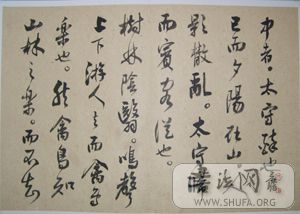 中者。太守醉也
已而夕陽在山。人
影散亂。太守歸
而賓客從也。
樹林陰翳。鳴聲
上下游人去而禽鳥
樂也。然禽鳥知
山林之樂。而不知
法网
WWW.SHUFA.ORG